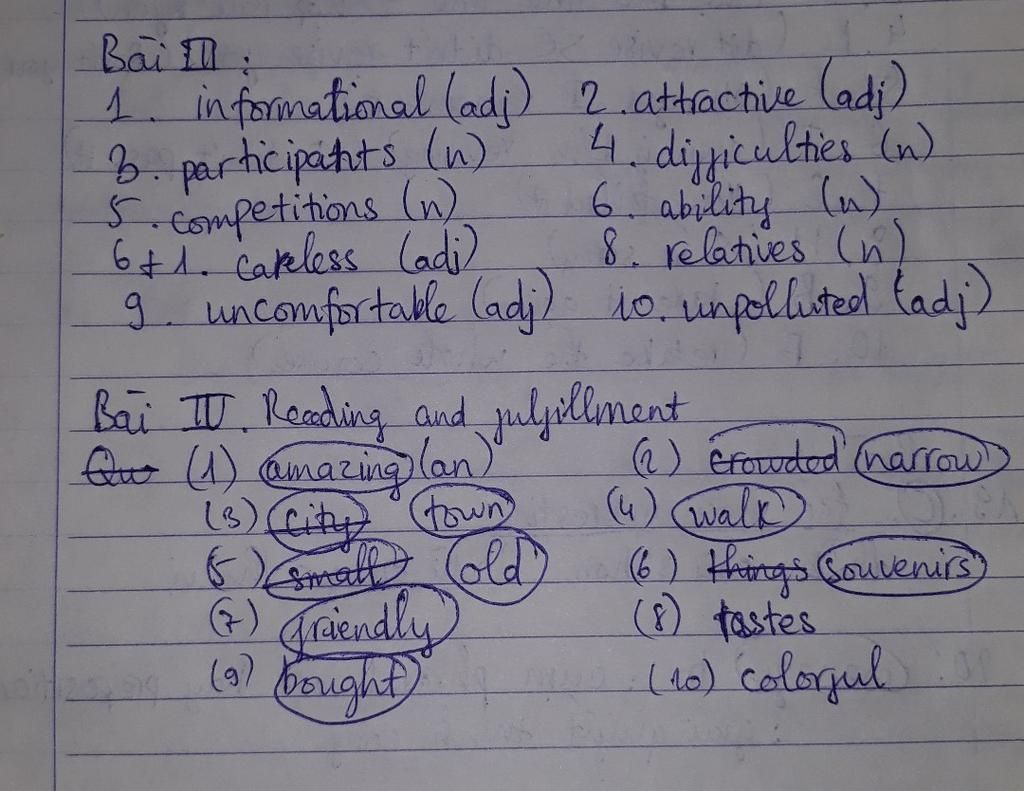 Bài III:
1. informational (adj) 2. attractive (adj)
3. participants (n) 4. difficulties (n)
5. competitions (n) 6. ability (n)
6+1. careless (adj) 8. relatives (n)
9. uncomfortable (adj) 10. unpolluted (adj)
Bài IV. Reading and fulfillment
Qu (1) amazing (an) (2) crowded narrow
(3) city town (4) walk
(5) small old (6) things souvenirs
(7) friendly (8) tastes
(9) bought (10) colorful